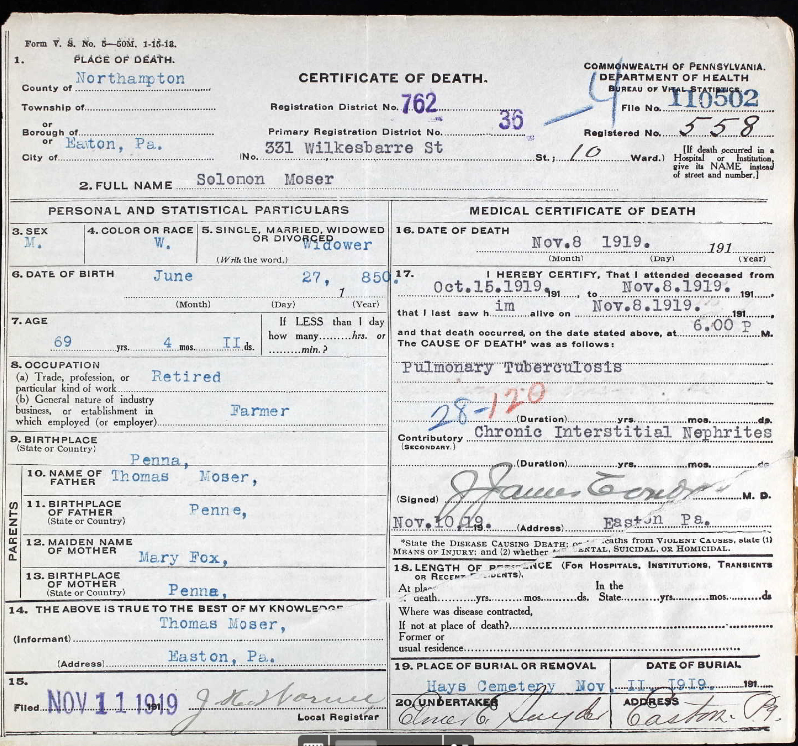 Form V. S. No. 5—50M. 1-15-18.
1. PLACE OF DEATH.
County of Northampton
Township of
or
Borough of
or
City of Easton, Pa.
CERTIFICATE OF DEATH.
Registration District No. 762
Primary Registration District No. 36
(No. 331 Wilkesbarre St St.; 10 Ward.)
COMMONWEALTH OF PENNSYLVANIA.
DEPARTMENT OF HEALTH
BUREAU OF VITAL STATISTICS
4
File No. 110502
Registered No. 558
[If death occurred in a
Hospital or Institution,
give its NAME instead
of street and number.]
2. FULL NAME Solomon Moser
PERSONAL AND STATISTICAL PARTICULARS
3. SEX
M.
4. COLOR OR RACE
W.
5. SINGLE, MARRIED, WIDOWED
OR DIVORCED
Widower
(Write the word.)
6. DATE OF BIRTH June 27, 1850.
(Month) (Day) (Year)
7. AGE
69 yrs. 4 mos. II ds.
If LESS than 1 day
how many......hrs. or
.........min.?
8. OCCUPATION
(a) Trade, profession, or
particular kind of work Retired
(b) General nature of industry
business, or establishment in
which employed (or employer) Farmer
9. BIRTHPLACE
(State or Country)
Penna,
PARENTS
10. NAME OF
FATHER Thomas Moser,
11. BIRTHPLACE
OF FATHER
(State or Country) Penne,
12. MAIDEN NAME
OF MOTHER
Mary Fox,
13. BIRTHPLACE
OF MOTHER
(State or Country) Penna,
14. THE ABOVE IS TRUE TO THE BEST OF MY KNOWLEDGE
(Informant) Thomas Moser,
(Address) Easton, Pa.
15.
Filed NOV 11 1919 191
Local Registrar
MEDICAL CERTIFICATE OF DEATH
16. DATE OF DEATH
Nov.8 1919. 191
(Month) (Day) (Year)
17. I HEREBY CERTIFY, That I attended deceased from
Oct.15.1919. 191 , to Nov.8.1919. 191 ,
that I last saw him alive on Nov.8.1919. 191 ,
and that death occurred, on the date stated above, at 6.00 P M.
The CAUSE OF DEATH* was as follows:
Pulmonary Tuberculosis
28-120
(Duration) yrs. mos. ds.
Contributory Chronic Interstitial Nephrites
(SECONDARY.)
(Duration) yrs. mos. ds
(Signed) J James M. D.
Nov.10.19. (Address) Easton Pa.
*State the DISEASE CAUSING DEATH; or deaths from VIOLENT CAUSES, state (1)
MEANS OF INJURY; and (2) whether ENTAL, SUICIDAL, OR HOMICIDAL.
18. LENGTH OF RESIDENCE (FOR HOSPITALS, INSTITUTIONS, TRANSIENTS
OR RECENT RESIDENTS).
At place
of death......yrs......mos......ds. In the State......yrs......mos......ds
Where was disease contracted,
If not at place of death?
Former or
usual residence
19. PLACE OF BURIAL OR REMOVAL
Hays Cemetery
DATE OF BURIAL
Nov. II 1919. 191
20. UNDERTAKER
Elmer C. Snyder
ADDRESS
Easton. Pa.